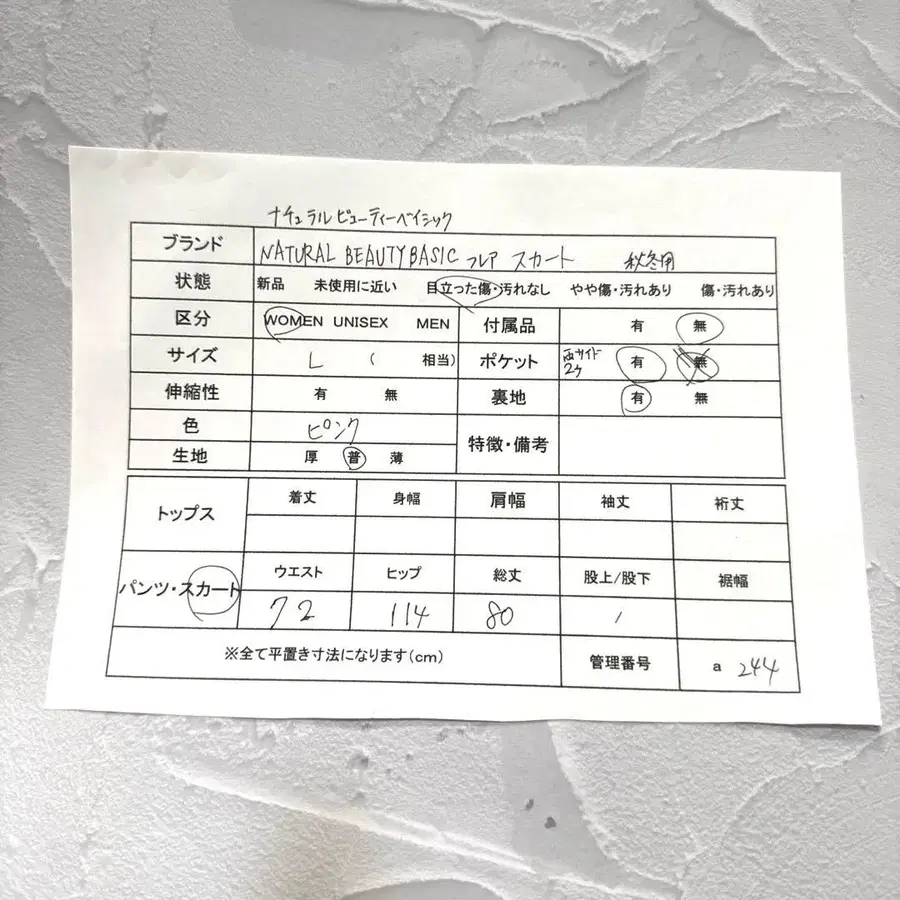 ナチュラルビューティーベイシック
ブランド NATURAL BEAUTY BASIC フレア スカート 秋冬用
状態 新品 未使用に近い 目立った傷・汚れなし やや傷・汚れあり 傷・汚れあり
区分 WOMEN UNISEX MEN 付属品 有 無
サイズ L ( 相当) ポケット 両サイド 2ケ 有 無
伸縮性 有 無 裏地 有 無
色 ピンク 特徴・備考
生地 厚 普 薄
トップス 着丈 身幅 肩幅 袖丈 裄丈
パンツ・スカート ウエスト ヒップ 総丈 股上/股下 裾幅
72 114 80 /
※全て平置き寸法になります(cm) 管理番号 a 244